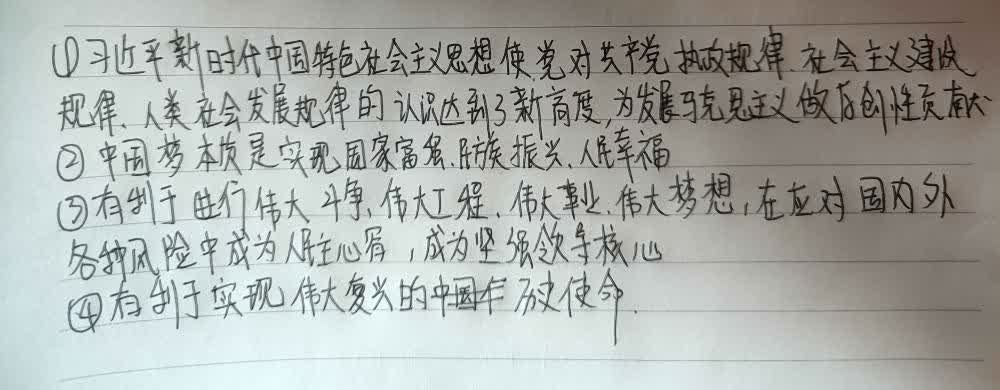 ①习近平新时代中国特色社会主义思想使党对共产党执政规律、社会主义建设
规律、人类社会发展规律的认识达到了新高度,为发展马克思主义做存创性贡献
②中国梦本质是实现国家富强、民族振兴、人民幸福
③有利于进行伟大斗争、伟大工程、伟大事业、伟大梦想,在应对国内外
各种风险中成为人民主心骨,成为坚强领导核心
④有利于实现伟大复兴的中国 历史使命.